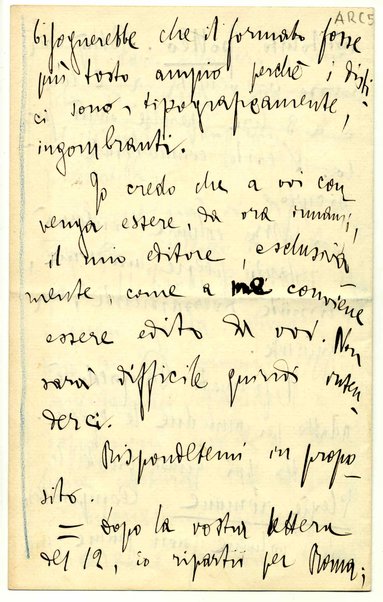 ARC5
bisognerebbe che il formato fosse
più tosto ampio perché i disti
ci sono, tipograficamente,
ingombranti.
Io credo che a voi con
venga essere, da ora innanzi,
il mio editore, esclusiva
mente, come a me conviene
essere edito da voi. Non
sarà difficile quindi inten
derci.
Rispondetemi in propo
sito.
= Dopo la vostra lettera
del 12, io ripartii per Roma;